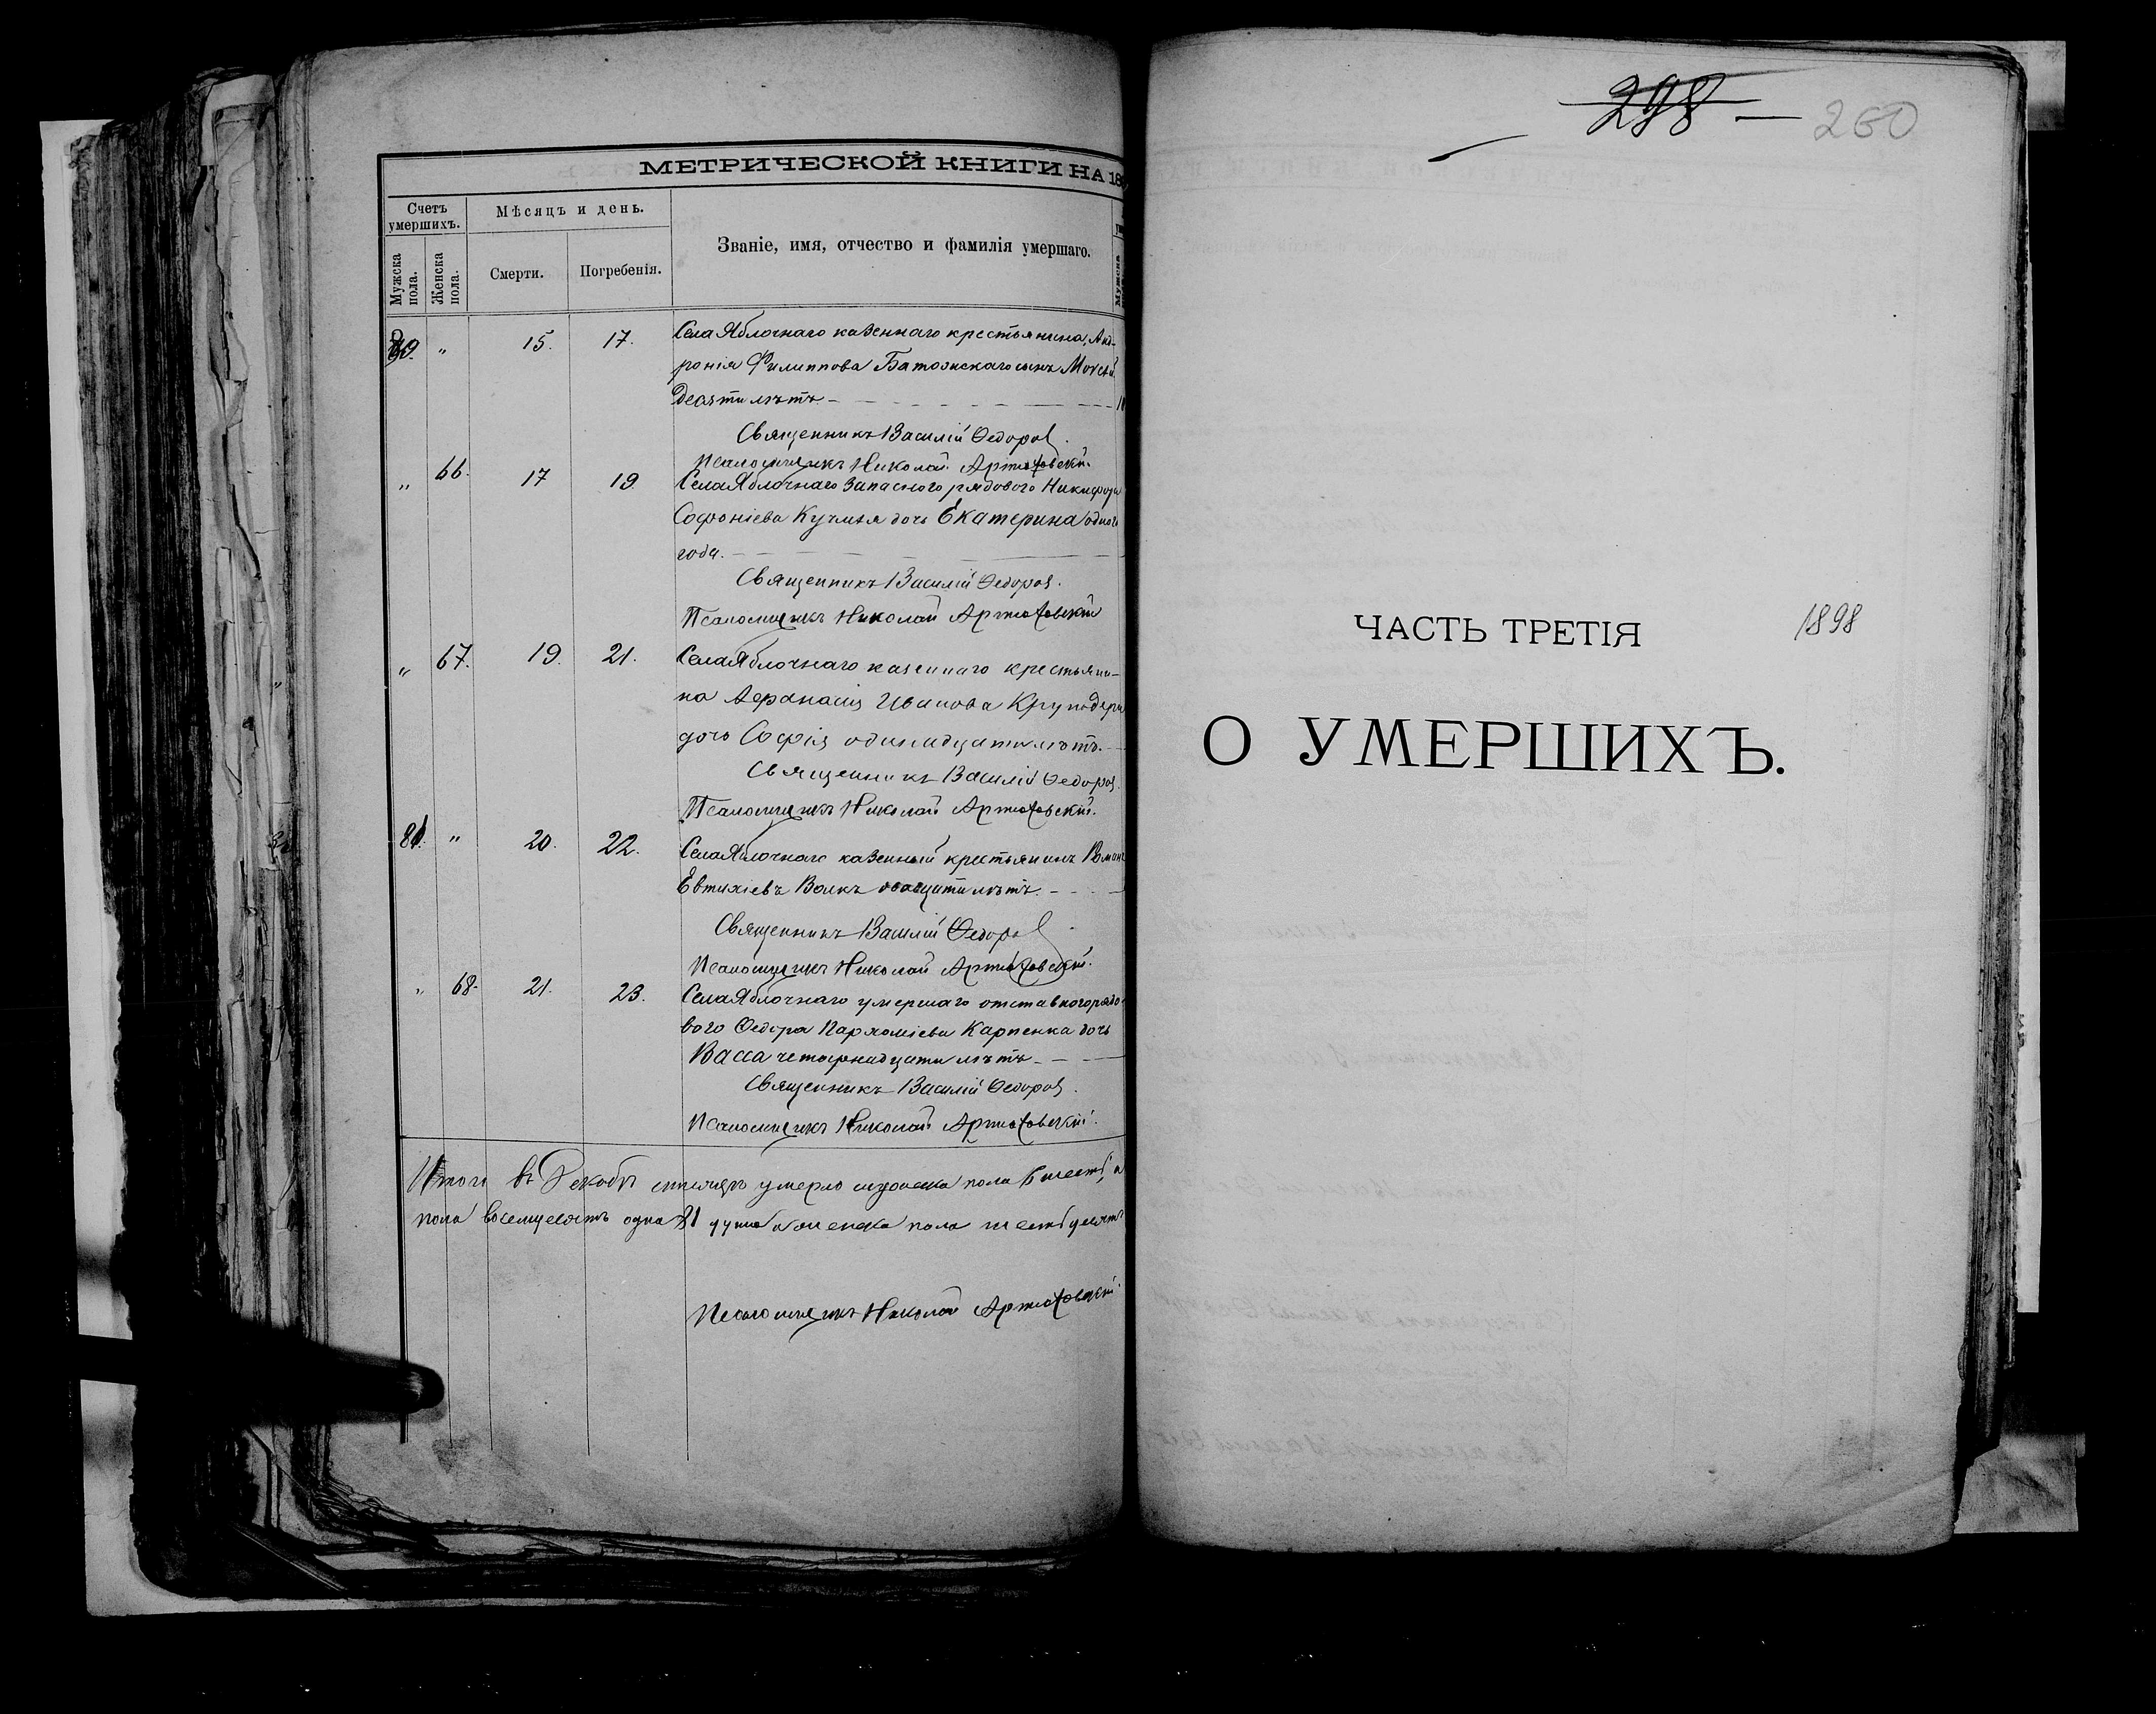 МЕТРИЧЕСКОЙ КНИГИ НА 18
Счетъ умершихъ.
Мѣсяцъ и день.
Званіе, имя, отчество и фамилія умершаго.
Мужска пола.
Женска пола.
Смерти.
Погребенія.
Мужска
80. " 15. 17. Села Яблочнаго казеннаго крестьянина, Анд-
ронія Филиппова Батожскаго сынъ Моѵсей
десяти лѣтъ
Священникъ Василій Ѳедоровъ.
Псаломщикъ Николай Артюховскій.
" 66. 17 19 Села Яблочнаго запаснаго рядового Никифора
Софоніева Кучмія дочь Екатерина одного
года.
Священникъ Василій Ѳедоровъ.
Псаломщикъ Николай Артюховскій
" 67. 19. 21. Села Яблочнаго казеннаго крестьяни-
на Афанасія Иванова Круподери
дочь Софія одинадцати лѣтъ.
Священникъ Василій Ѳедоровъ.
Псаломщикъ Николай Артюховскій.
81. " 20. 22. Села Яблочнаго казенный крестьянинъ Романъ
Евтихіевъ Волкъ лѣтъ.
Священникъ Василій Ѳедоровъ
Псаломщикъ Николай Артюховскій.
" 68. 21. 23. Села Яблочнаго умершаго отставного рядо-
вого Ѳедора Пархоміева Карпенка дочь
Васса четырнадцати лѣтъ
Священникъ Василій Ѳедоровъ.
Псаломщикъ Николай Артюховскій.
Итого въ Декабрѣ мѣсяцѣ умерло мужеска пола 6 шесть, а
пола восемдесятъ одна 81 душа а женска пола шестьдесятъ
Псаломщикъ Николай Артюховскій
298
260
ЧАСТЬ ТРЕТІЯ
1898
О УМЕРШИХЪ.